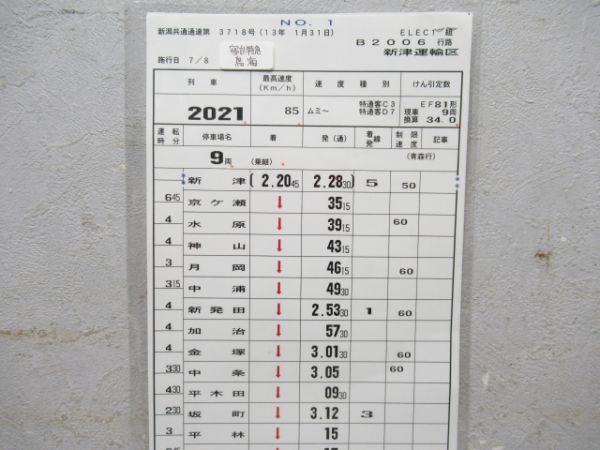 NO. 1
新潟共通通達第 3718号(13年 1月31日)
施行日 7/8
寝台特急
鳥海
B2006 行路
新津運輸区
列車 最高速度(Km/h) 速度種別 けん引定数
2021 85 ムミ～ 特通客C3 特通客D7 EF81形 現車 9両 換算 34.0
運転時分 停車場名 着 発(通) 着発線 制限速度 記事
9両 (乗継) (青森行)
新津 (2.20 45 2.28 30) 5 50
6 45 京ケ瀬 ↓ 35 15
4 水原 ↓ 39 15 60
4 神山 ↓ 43 15
3 月岡 ↓ 46 15 60
3 15 中浦 ↓ 49 30
4 新発田 ↓ 2.53 30 1 60
4 加治 ↓ 57 30
4 金塚 ↓ 3.01 30 60
3 30 中条 ↓ 3.05 60
4 30 平木田 ↓ 09 30
2 30 坂町 ↓ 3.12 3
3 平林 ↓ 15